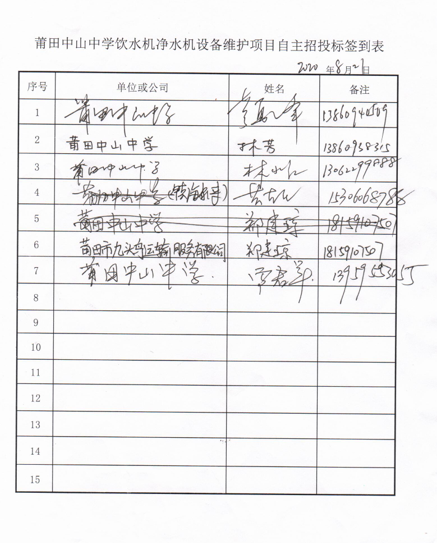 莆田中山中学饮水机净水机设备维护项目自主招投标签到表
2020 年 8 月 21 日
序号 单位或公司 姓名 备注
1 莆田中山中学 13860940509
2 莆田中山中学 林芳 13860958315
3 莆田中山中学 13062299888
4 莆田中山中学 15306068788
5 莆田中山中学 郑建琼 18159107507
6 莆田市九头鸟运输服务有限公司 郑建琼 18159107507
7 莆田中山中学
8
9
10
11
12
13
14
15